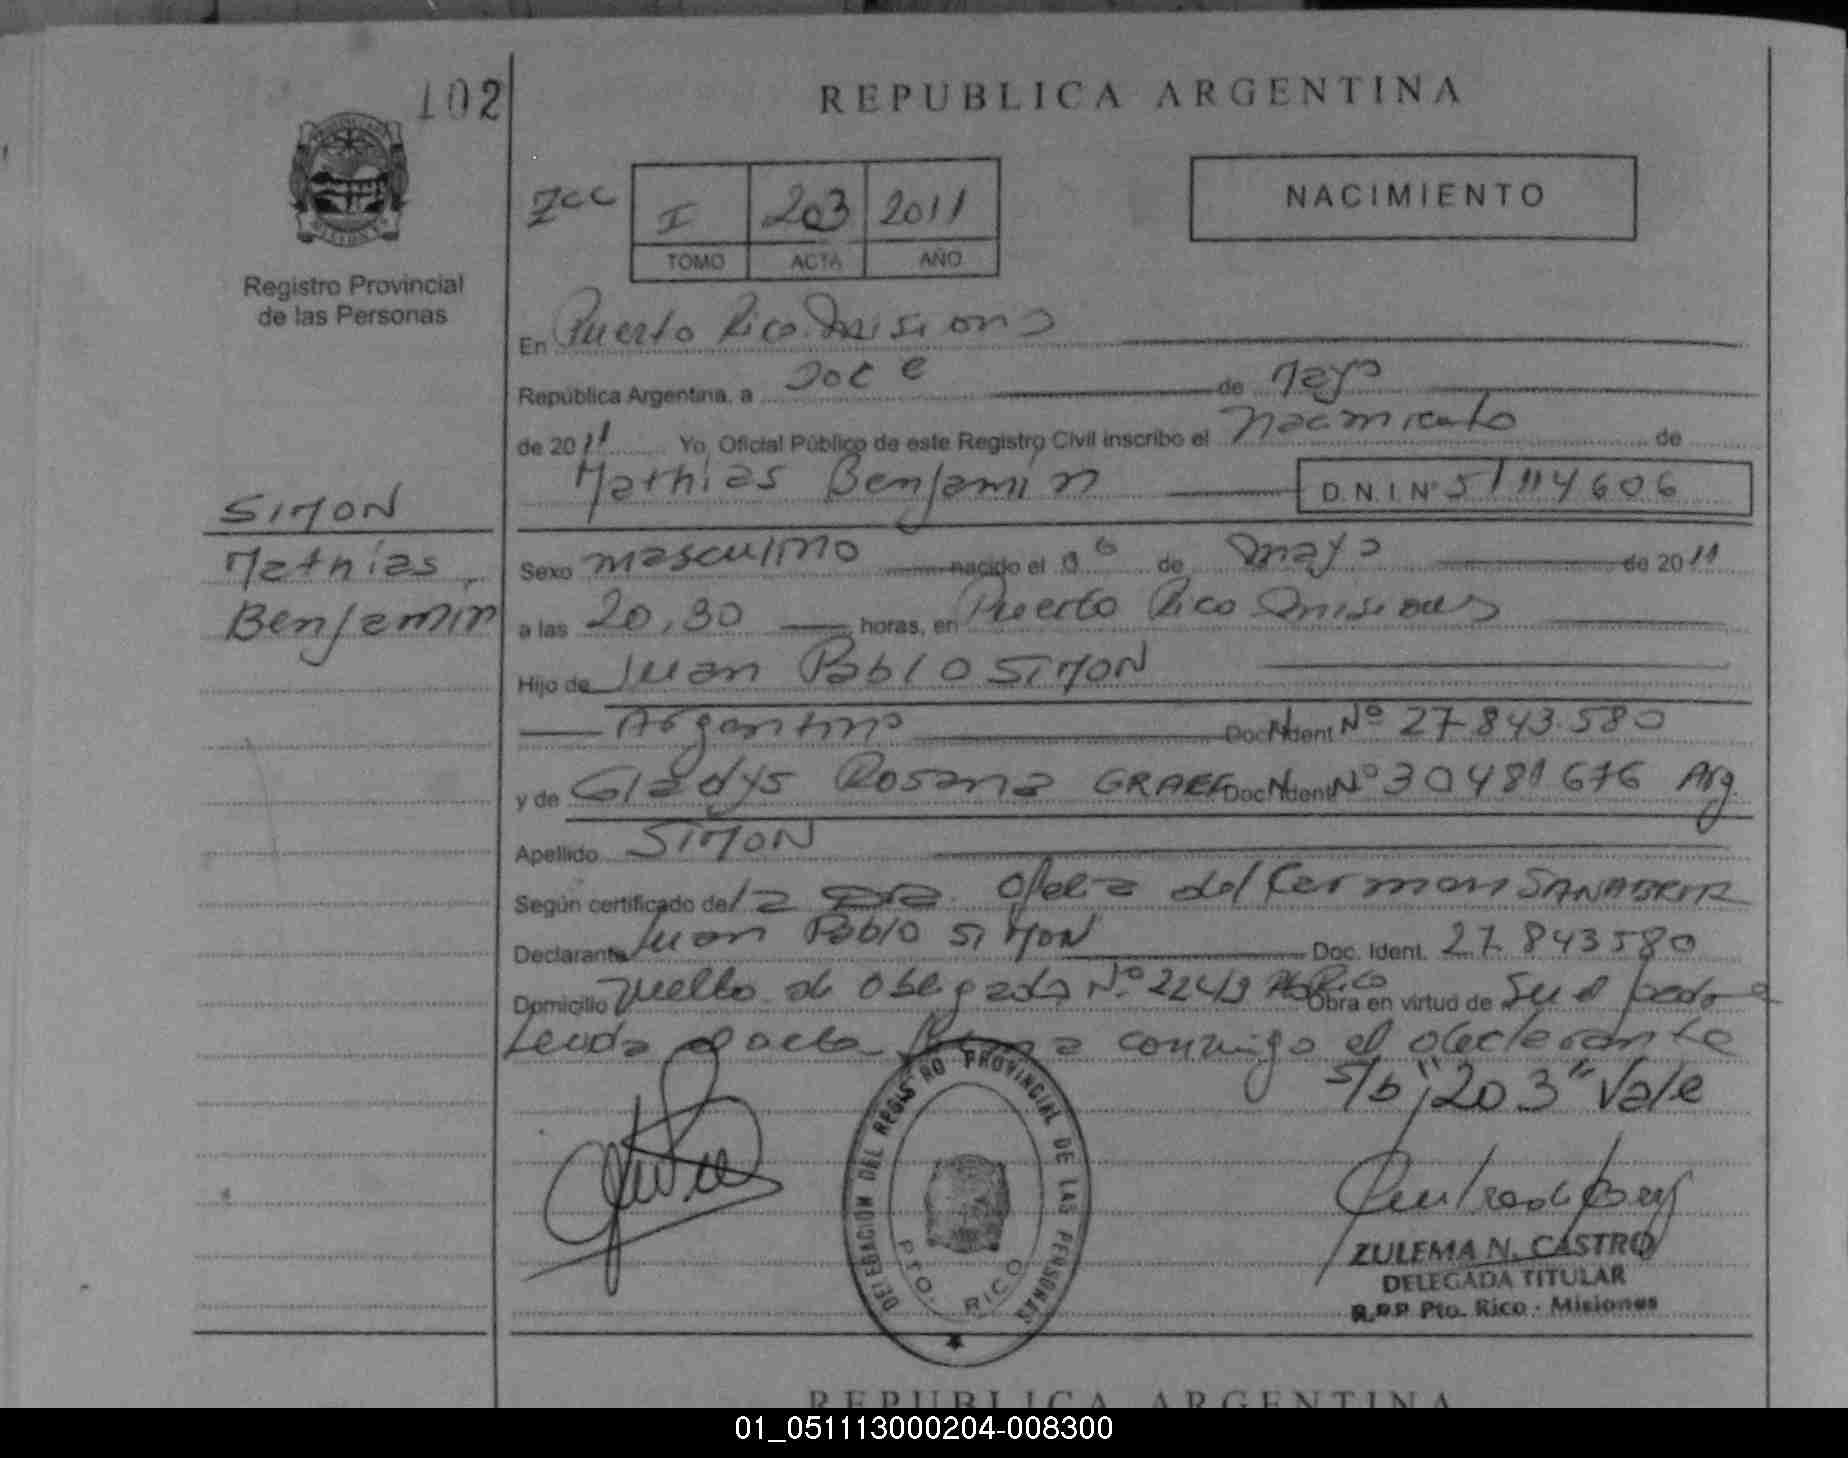 102
REPUBLICA ARGENTINA
Registro Provincial
de las Personas
I 203 2011
TOMO ACTA AÑO
NACIMIENTO
En Puerto Rico Misiones
República Argentina, a Doce de Mayo
de 2011 Yo, Oficial Público de este Registro Civil inscribo el Nacimiento de
Mathias Benjamin D.N.I Nº 51114606
SIMON
Mathias
Benjamin
Sexo masculino nacido el de mayo de 2011
a las 20,30 horas, en Puerto Rico Misiones
Hijo de Juan Pablo SIMON
Argentino Doc. Ident Nº 27.843.580
y de Gladys Rosana GRAEF Doc. Ident Nº 30481676 Arg.
Apellido SIMON
Según certificado de la Ofelia del Carmen SANABRIA
Declarante Juan Pablo SIMON Doc. Ident. 27.843580
Domicilio Vuelta de Obligado Nº Pto Rico Obra en virtud de Ser el padre
Leida el acta firma conmigo el declarante
S/b "203" Vale
DELEGACION DEL REGISTRO PROVINCIAL DE LAS PERSONAS
PTO. RICO
ZULEMA N. CASTRO
DELEGADA TITULAR
R.P.P Pto. Rico - Misiones
REPUBLICA ARGENTINA
01_051113000204-008300